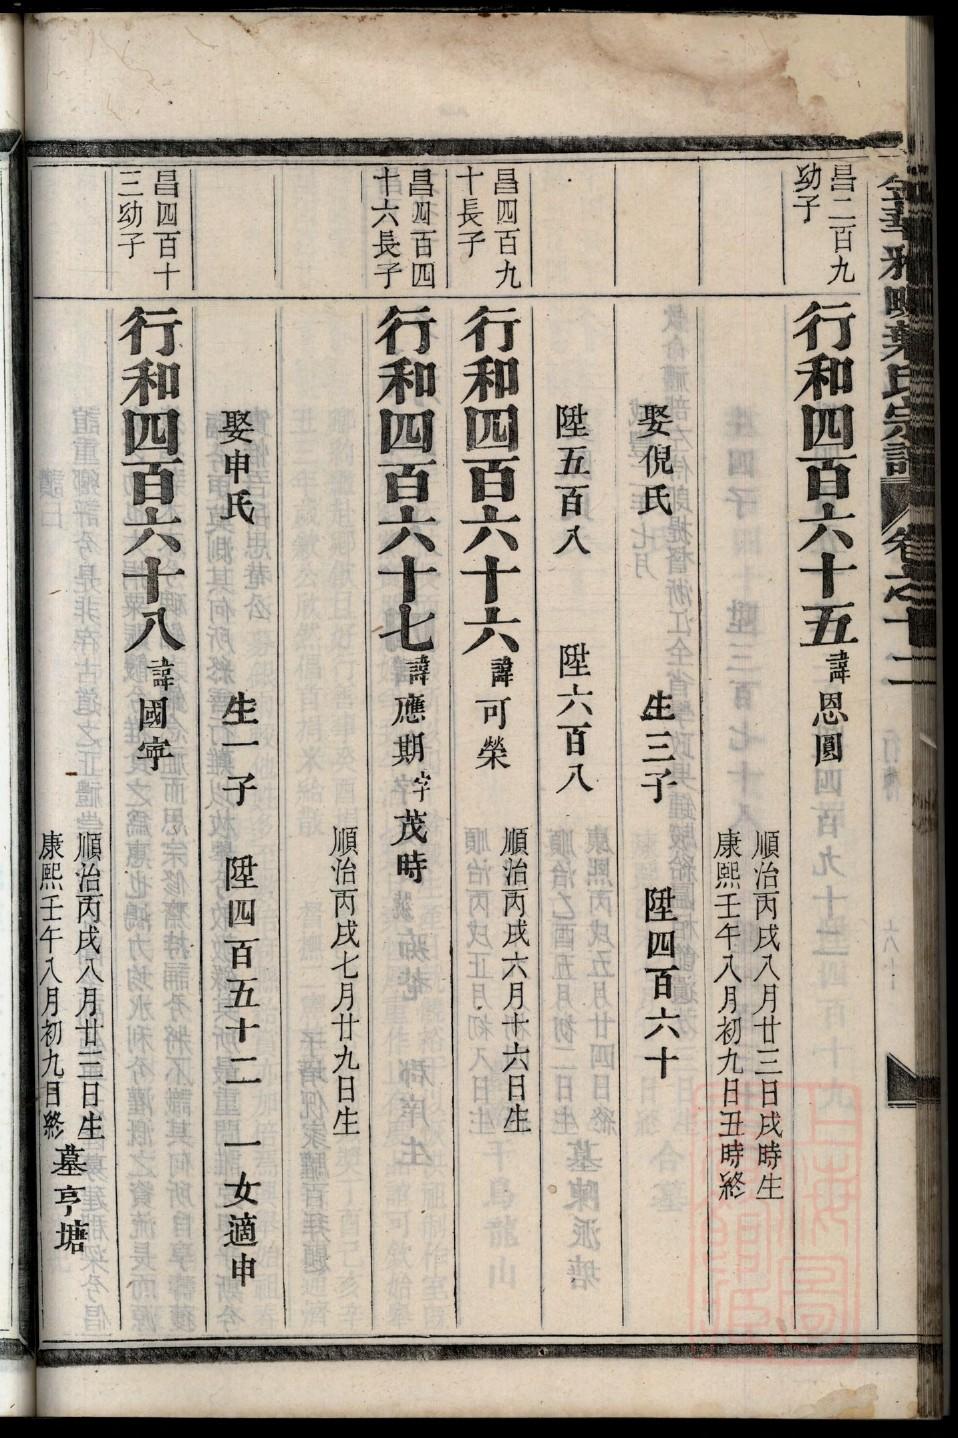 氏宗譜
卷之十二
昌二百九
幼子
行和四百六十五 諱恩圓
順治丙戌八月廿三日戌時生
康熙壬午八月初九日丑時終
娶倪氏 生三子 陞四百六十
陞五百八 陞六百八
昌四百九
十長子
行和四百六十六 諱可榮
順治丙戌六月十六日生
昌四百四
十六長子
行和四百六十七 諱應期 字茂時
順治丙戌七月廿九日生
娶申氏 生一子 陞四百五十二 一女適申
昌四百十
三幼子
行和四百六十八 諱國寧
順治丙戌八月廿三日生
康熙壬午八月初九日終
墓亨塘